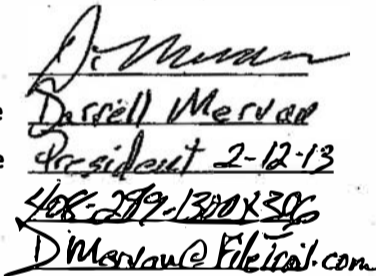 D. Mervan
e Darrell Mervan
e President 2-12-13
408-289-1300 X306
DMervan@FileTrail.com